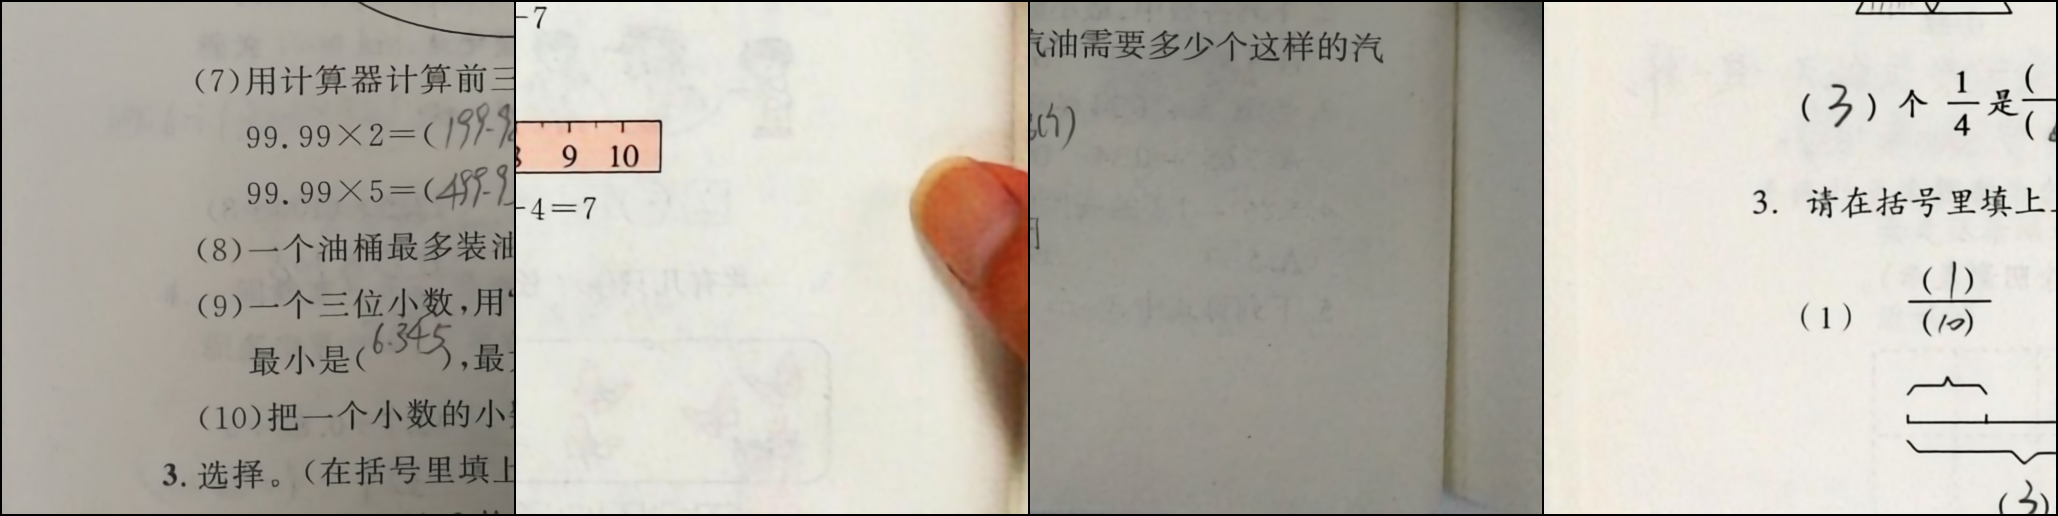 (7)用计算器计算前三
99.99×2=(199.9
99.99×5=(499.9
(8)一个油桶最多装油
(9)一个三位小数,用“
最小是(6.345),最
(10)把一个小数的小
3.选择。(在括号里填上
-7
9 10
-4=7
汽油需要多少个这样的汽
(个)
(3)个 1/4 是 (
(
3. 请在括号里填上
(1) (1)/(10)
(3)